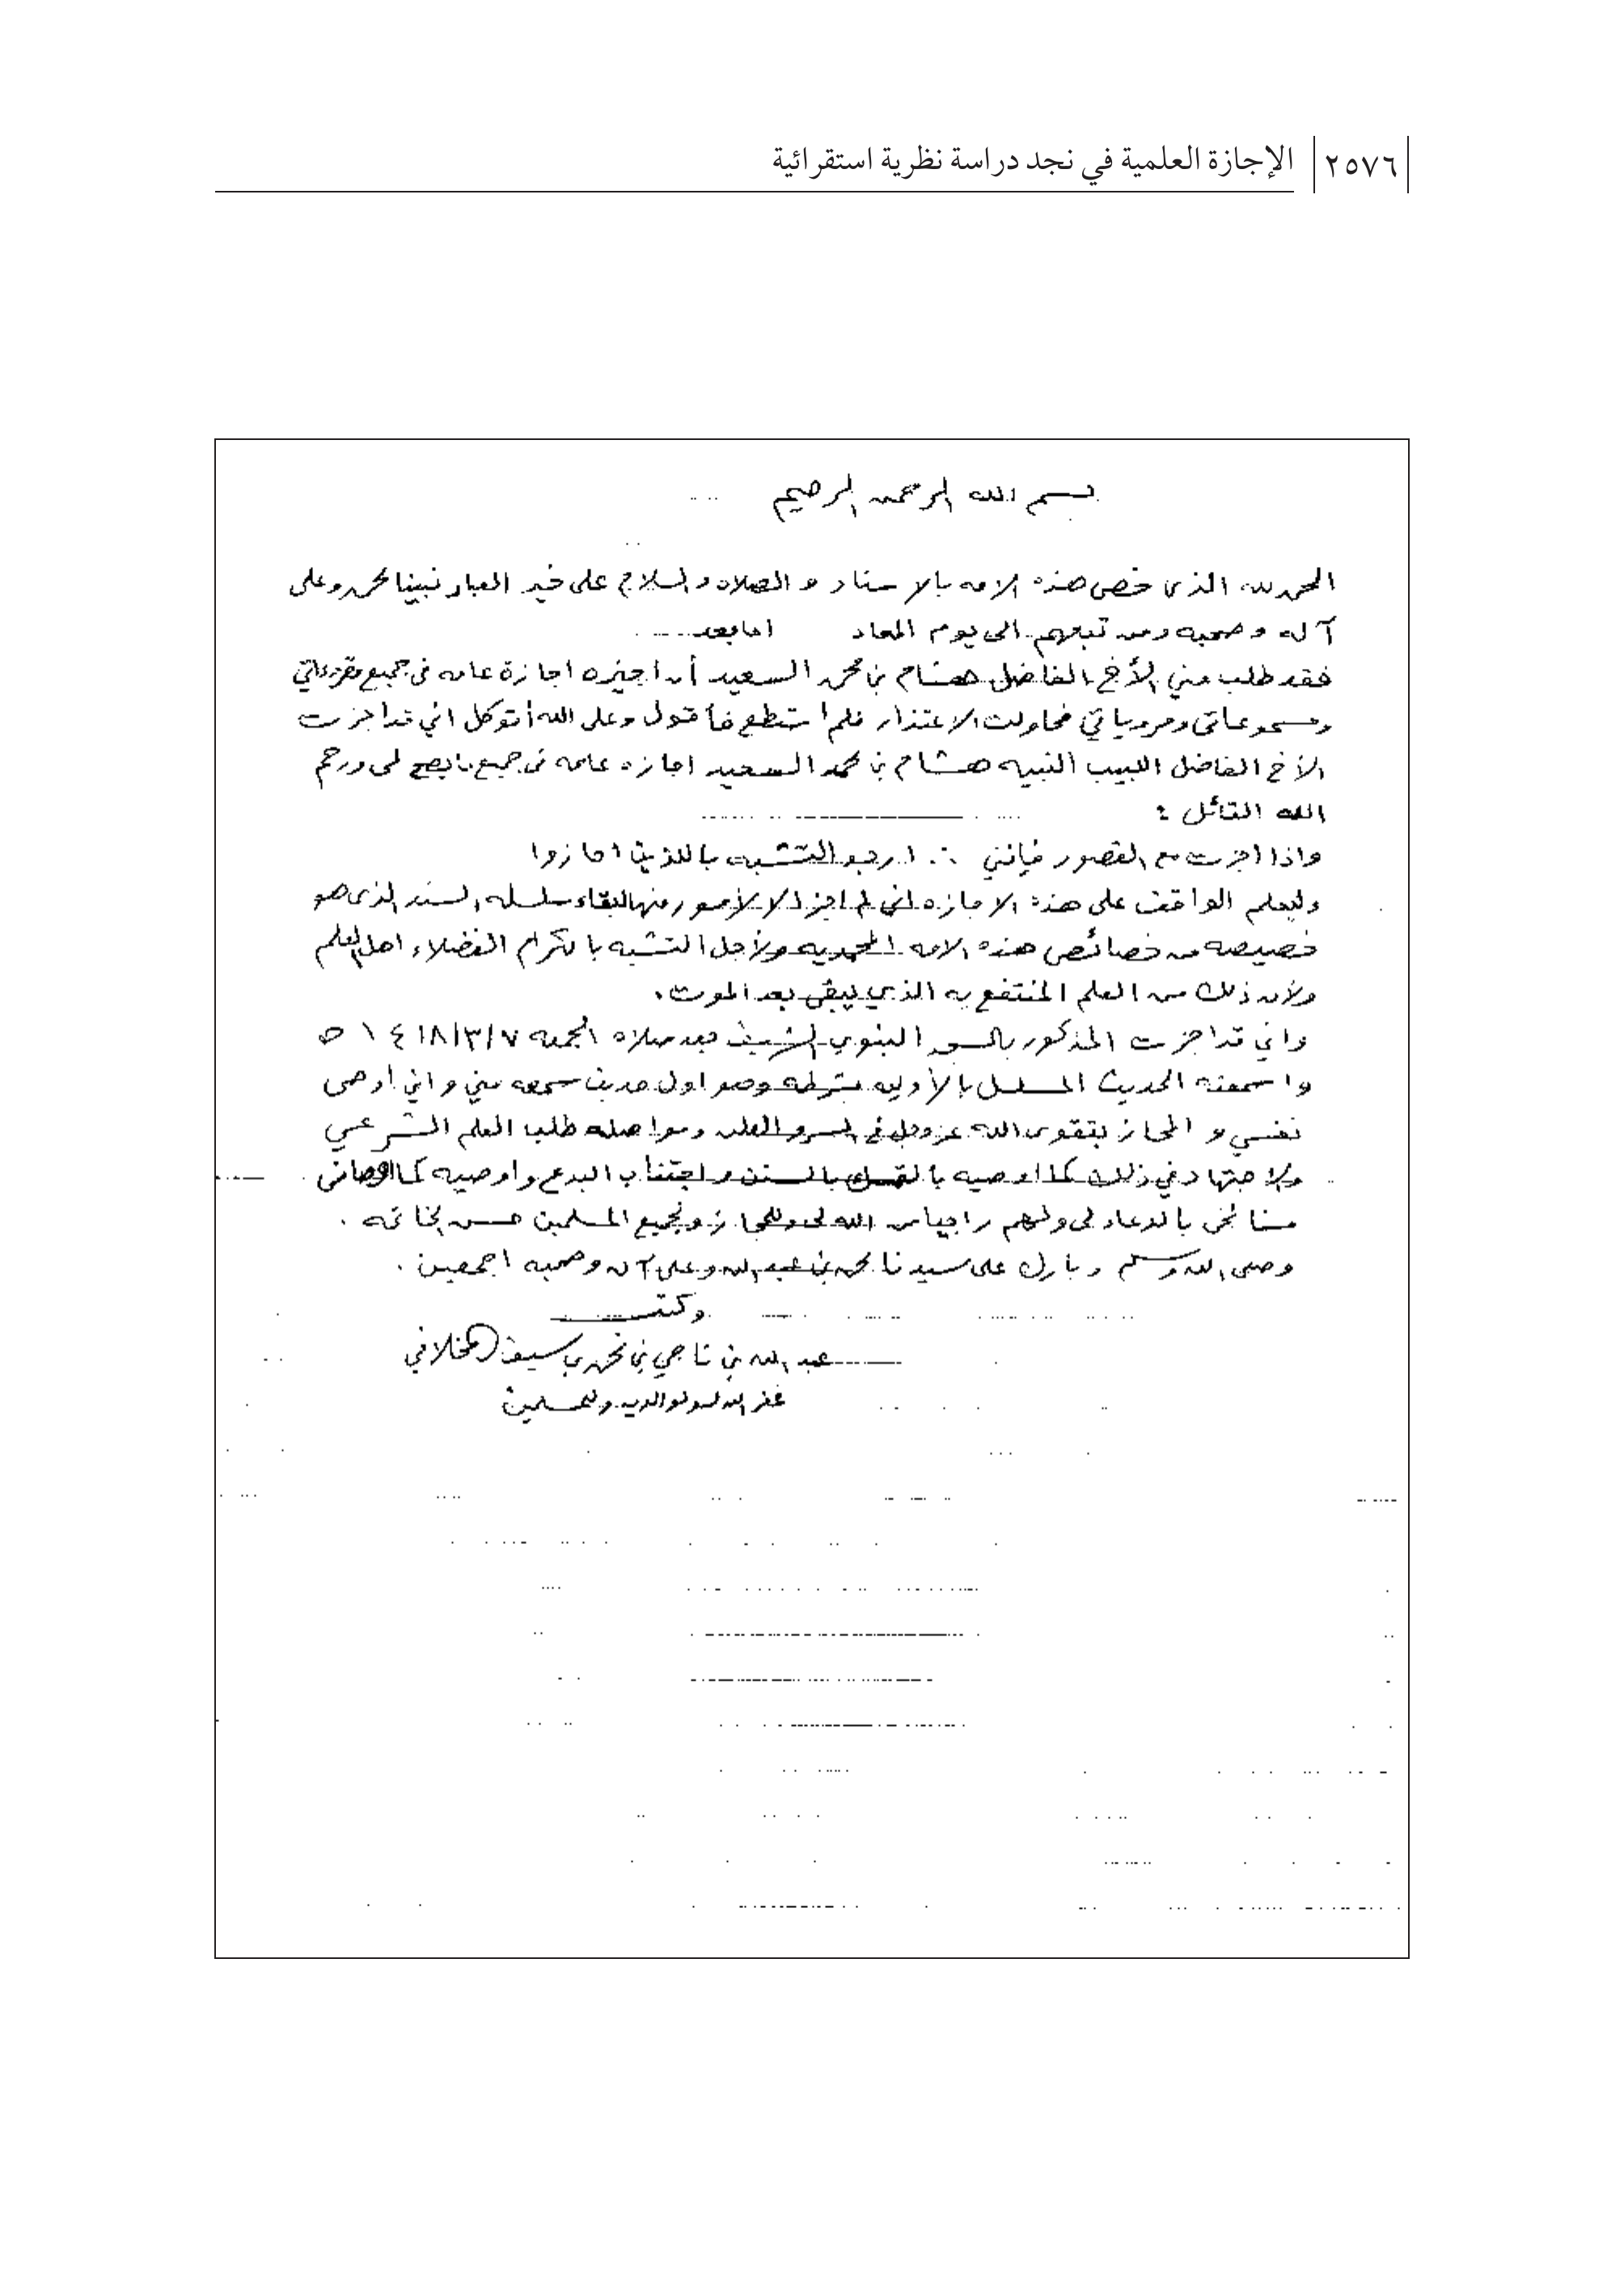 ٢٥٧٦ الإجازة العلمية في نجد دراسة نظرية استقرائية
بسم الله الرحمن الرحيم
الحمد لله الذي خص هذه الامه بالاسناد والصلاه والسلام على خير العباد نبينا محمد وعلى
آله وصحبه ومن تبعهم الى يوم المعاد اما بعد
فقد طلب مني الأخ الفاضل هشام بن محمد السعيد أن اجيزه اجازة عامه في جميع مقروءاتي
ومسموعاتي ومروياتي فحاولت الاعتذار فلم استطع فأقول وعلى الله أتوكل اني قد اجزت
الأخ الفاضل اللبيب النبيه هشام بن محمد السعيد اجازه عامه في جميع ما يصح لي ورحم
الله القائل :
واذا اجزت مع القصور فإنني ∴ ارجو التشبه باللذين اجازوا
وليعلم الواقف على هذه الاجازه اني لم اجز الا لأمور منها لبقاء سلسله السند الذي هو
خصيصه من خصائص هذه الامه المحمديه ولأجل التشبه بالكرام الفضلاء اهل العلم
ولأن ذلك من العلم المنتفع به الذي يبقى بعد الموت.
واني قد اجزت المذكور بالمسجد النبوي الشريف بعد صلاه الجمعه ١٤١٨/٣/٧ ه
واسمعته الحديث المسلسل بالأوليه بشرطه وهو اول حديث سمعه مني واني أوصي
نفسي والمجاز بتقوى الله عز وجل في السر والعلن ومواصله طلب العلم الشرعي
والاجتهاد في ذلك كما اوصيه بالتمسك بالسنن واجتناب البدع واوصيه كما اوصاني
مشائخي بالدعاء لي ولهم راجيا من الله لي وللمجاز ولجميع المسلمين حسن الخاتمه .
وصلى الله وسلم وبارك على سيدنا محمد بن عبد الله وعلى آله وصحبه اجمعين .
وكتب
عبد الله بن ناجي بن محمد بن سيف المخلافي
غفر الله له ولوالديه وللمسلمين